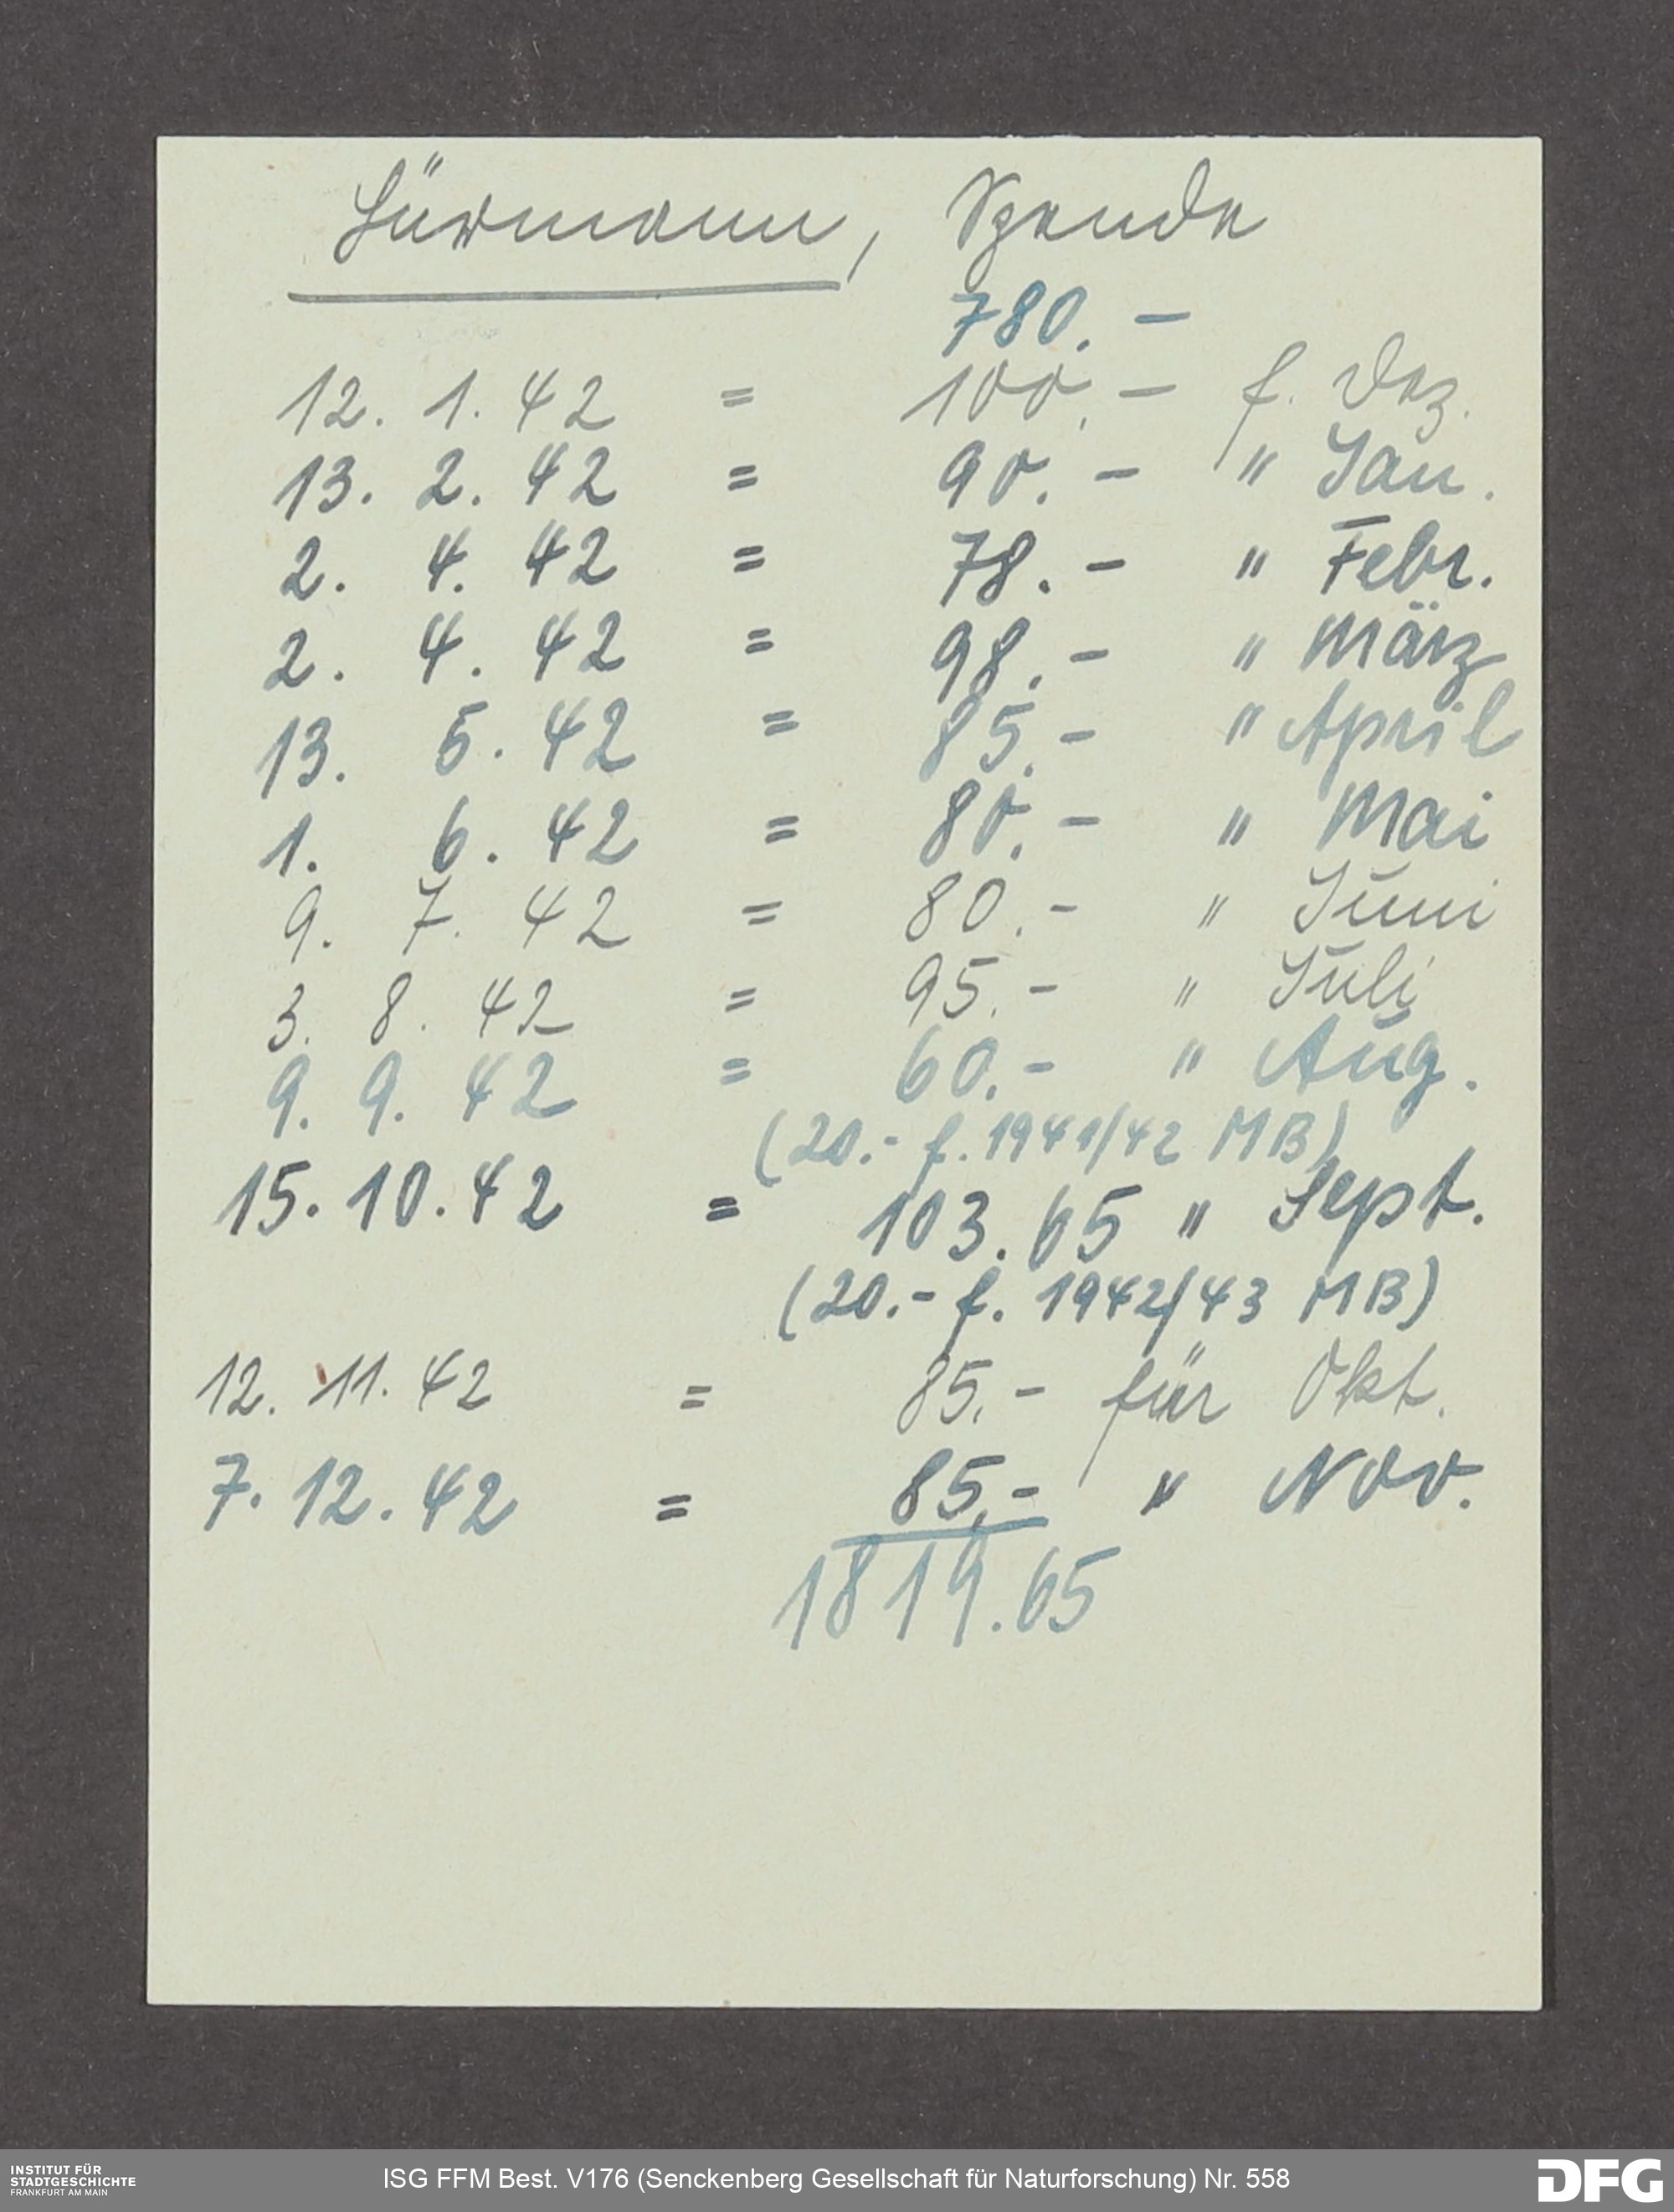 Lürmann, Spende
780.-
12. 1. 42 = 100.- f. Dez.
13. 2. 42 = 90.- " Jan.
2. 4. 42 = 78.- " Febr.
2. 4. 42 = 98.- " März
13. 5. 42 = 85.- " April
1. 6. 42 = 80.- " Mai
9. 7. 42 = 80.- " Juni
3. 8. 42 = 95.- " Juli
9. 9. 42 = 60.- " Aug.
(20.- f. 1941/42 MB)
15. 10. 42 = 103.65 " Sept.
(20.- f. 1942/43 MB)
12. 11. 42 = 85.- für Okt.
7. 12. 42 = 85.- " Nov.
1819.65
INSTITUT FÜR
STADTGESCHICHTE
FRANKFURT AM MAIN
ISG FFM Best. V176 (Senckenberg Gesellschaft für Naturforschung) Nr. 558
DFG